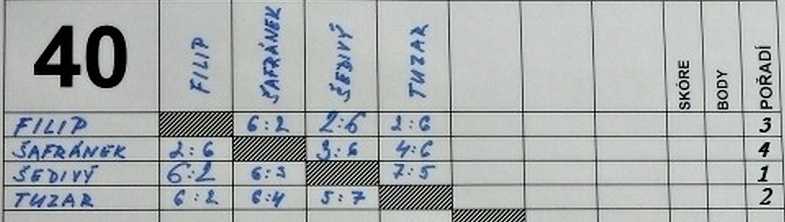 40 FILIP ŠAFRÁNEK ŠEDIVÝ TUZAR SKÓRE BODY POŘADÍ
FILIP 6:2 2:6 2:6 3
ŠAFRÁNEK 2:6 3:6 4:6 4
ŠEDIVÝ 6:2 6:3 7:5 1
TUZAR 6:2 6:4 5:7 2